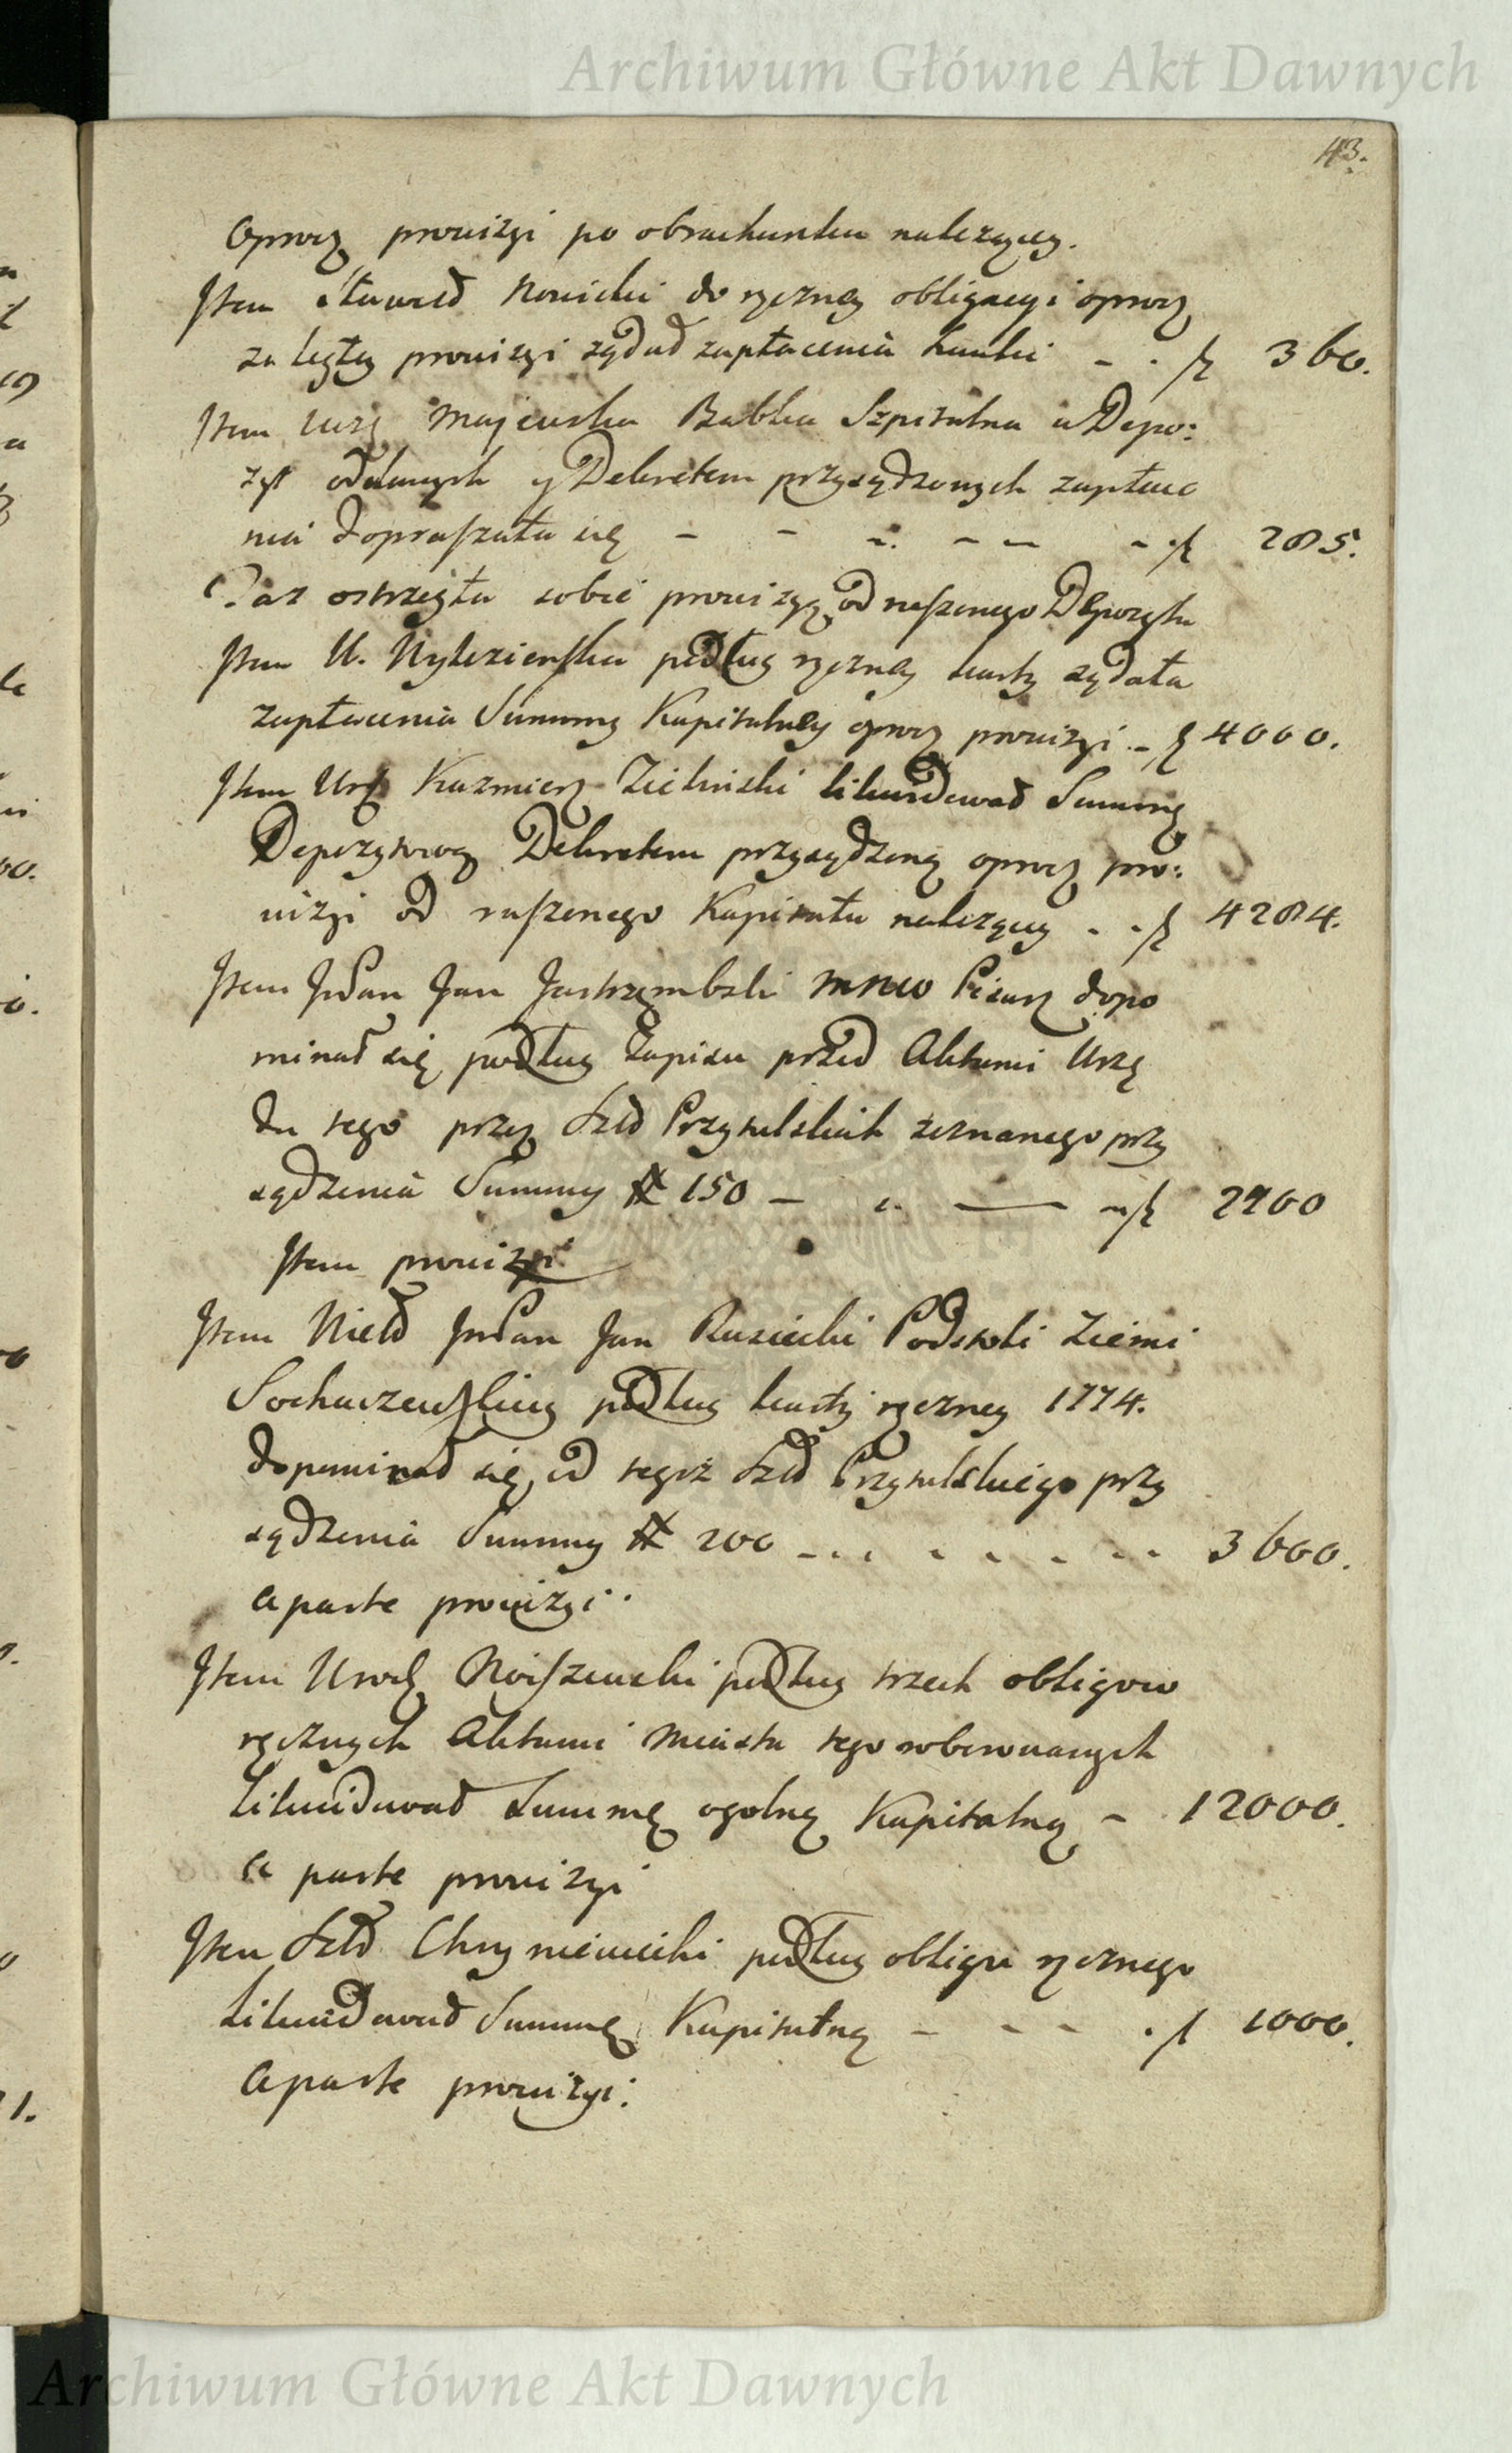 Archiwum Główne Akt Dawnych
43.
Oprocz prowizyi po obrachunku należący.
Item Sławed Nowicki do ręczney obligacyi oprocz
zaległey prowizyi żądał zapłacenia kwotki - . f 360.
Item Majewska Babka Szpitalna w Depo:
zyt oddanych y Dekretem przysądzonych zapłace
nia dopraszała się - - - - - - f 285.
ostrzegła sobie prowizyą od ruszonego Depozytu
Item U. podług ręczney karty żądała
zapłacenia Summy Kapitalney oprocz prowizyi - f 4000.
Item Urz Kazmierz Zieliński likwidował Summę
Depozytową Dekretem przysądzoną oprocz pro:
wizyi od ruszonego Kapitału należący - - f 4284.
Item JmPan Jan Jastrzęmbski mnco Pisarz dopo
minał się podług Zapisu przed Aktami Urzę
du tego przez Sztd Przytulskich zeznanego przy
sądzenia Summy # 150 - - — f 2700
Item prowizyi
Item Wield JmPan Jan Rusiecki Podstoli Ziemi
Sochaczewskiey podług karty ręczney 1774.
dopominał się od tegoż Sztd Przytulskiego przy
sądzenia Summy # 200 - . . - - - - - 3600.
aparte prowizyi.
Item Urodz Noiszewski podług trzech obligow
ręcznych Aktami Miasta tego roborowanych
Likwidował Summę ogolną Kapitalną - 12000.
a parte prowizyi
Item Sztd podług obligu ręcznego
Likwidował Summę Kapitalną - - - . f 1000.
aparte prowizyi:
Archiwum Główne Akt Dawnych